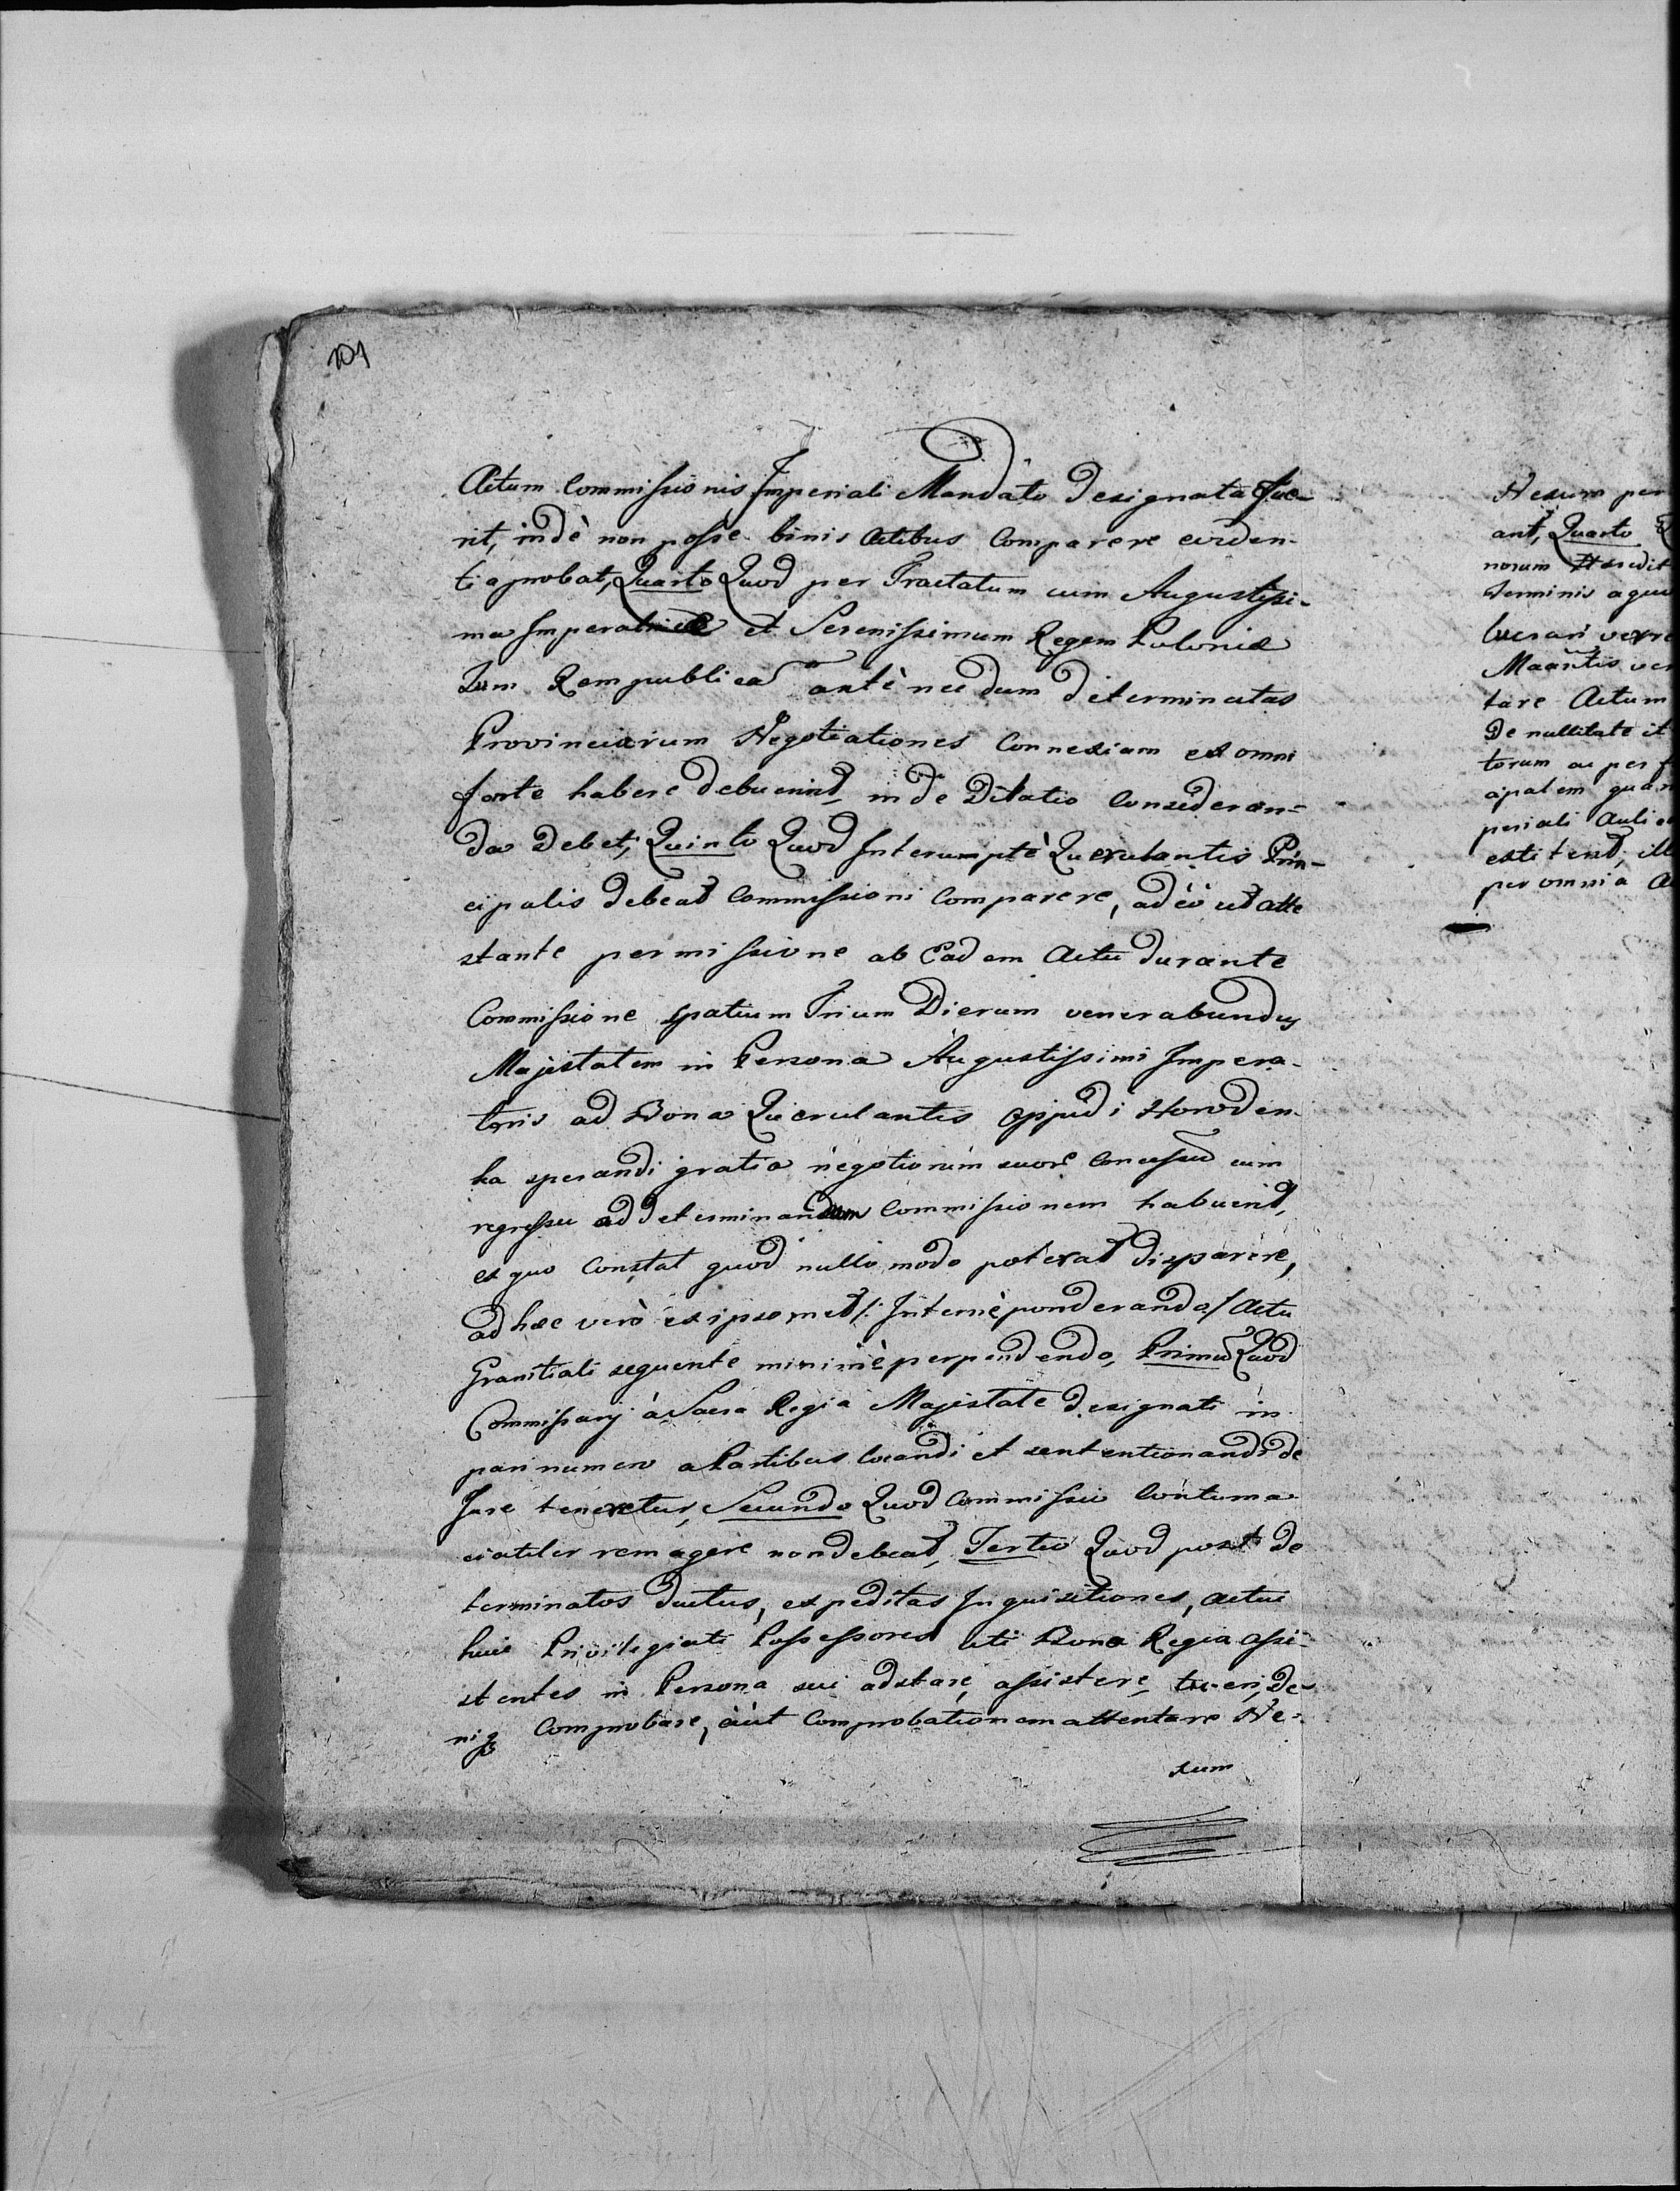 101
Actum Commissionis Imperiali Mandato designata fue-
rit, indè non posse binis Actibus Comparere eviden-
ti aprobat, Quarto Quod per Tractatum cum Augustissi-
ma Imperatrice et Serenissimum Regem Poloniæ
Tum Rempublicã antè nec dum determinatas
Provinciarum Negotiationes Connexiam ex omni
forte habere debuerint, inde Dilatio Consideran-
da Debet, Quinto Quod Interumptè Querulantis Prin-
cipalis debeat Commissioni Comparere, adeò ut atte
stante permissione ab Eadem Actu durante
Commissione spatium Trium Dierum venerabundus
Majestatem in Persona Augustissimi Impera-
toris ad Bona Querulantis Oppidi Horoden-
ka sperandi gratia negotiorum suorũ Concessũ cum
regressu ad determinandam Commissionem habuerit,
ex quo Constat quod nullo modo poterat disparere,
ad hæc verò ex ipsomet /: Internè ponderando / Actu
Granitiali sequente minimè perpendendo, Primũ Quod
Commissarij à Sacra Regia Majestate designati in
pari numero a Partibus locandi et sententionandi de
Jure tenerentur, Secundo Quod Commissio Contuma
cialiter rem agere non debeat, Tertio Quod post de
terminatos ductus, expeditas Inquisitiones, actui
huic Privilegiati Possessores uti Bona Regia assi-
stentes in Persona sui adstare, assistere, tueri, De-
niq Comprobare, aùt Comprobationem attentare Ne-
xum
Nexum per
ant, Quarto
norum Hæredit
Terminis a quo
Maãntis ver
tare Actum
De nullitate it
torum ac per
peniali Auli
extitend, ill
per omnia A